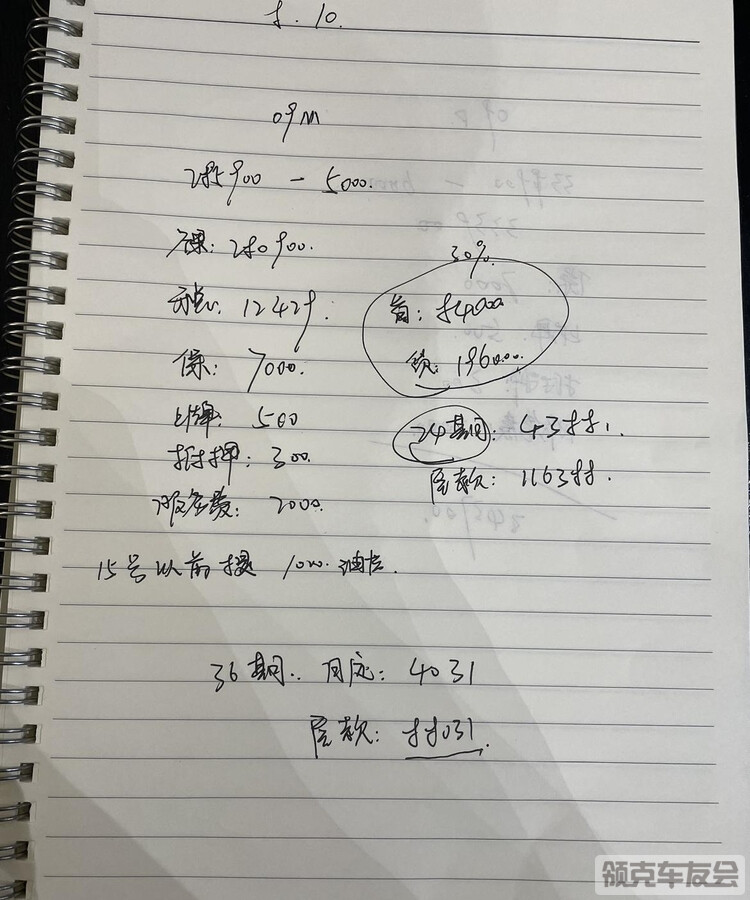 8.10.
09M
285900 - 5000.
开票: 280900.
30%
12429.
首: 84000
保: 7000.
贷: 196000.
上牌: 500
24期: 4388
抵押: 300.
尾款: 116388.
服务费: 2000.
15号以前提 1000.油卡.
36期.. 月还: 4031
尾款: 88031.
领克车友会